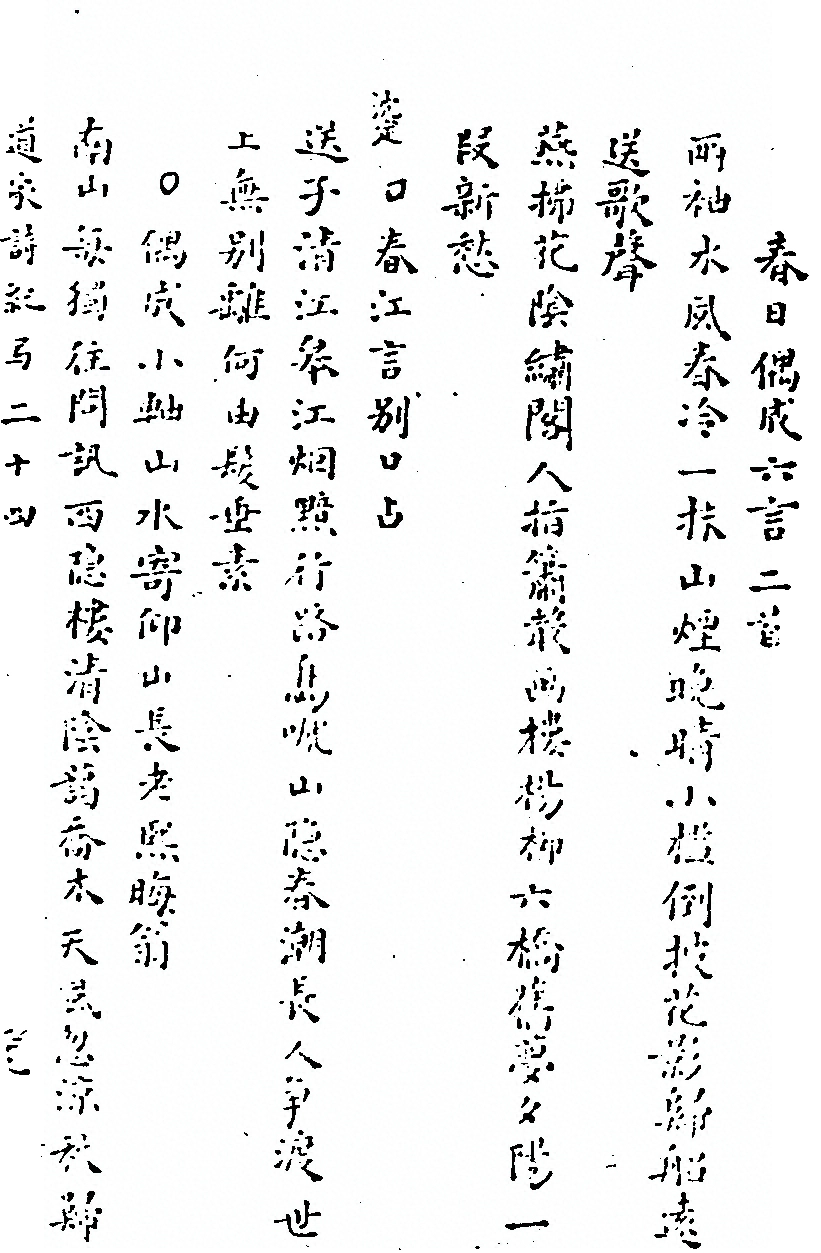 春日偶成六言二首
兩袖水風春冷一抹山煙晚晴小槛倒披花影歸船遠
送歌聲
燕拂花陰繡閣人指簫散画樓楊柳六橋舊夢夕陽一
段新愁
〇春江言別口占
送子清江举江烟黯行路鳥啼山隐春潮長人争渡世
上無别離何由髮垂素
〇偶成小軸山水寄仰山長老熙晦翁
南山每獨往問訊西隐樓清陰蔼喬木天風忽凉秋歸
道家詩紀 二十四